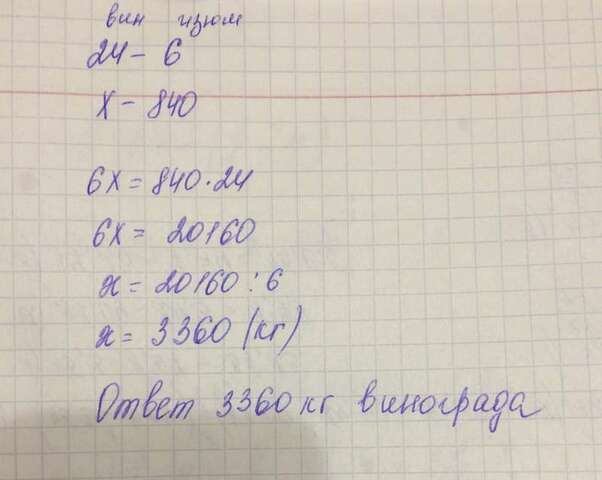 вин изюм
24 - 6
х - 840
6х = 840 · 24
6х = 20160
х = 20160 : 6
х = 3360 (кг)
Ответ 3360 кг винограда